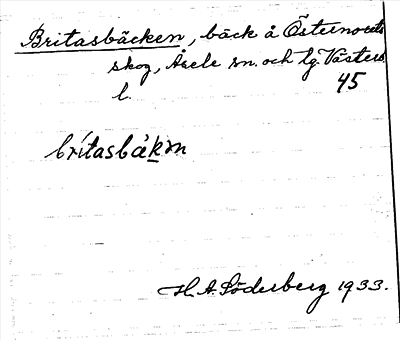 Britasbäcken, bäck å Östernorets
skog, Åsele sn. och lg. Västerb.
l. 45
britasbäkm
H. A. Söderberg 1933.